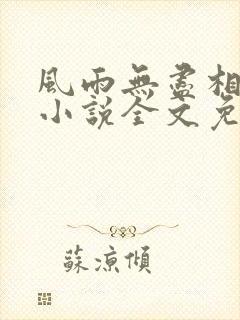 風雨無盡相
小說全文免
蘇涼傾